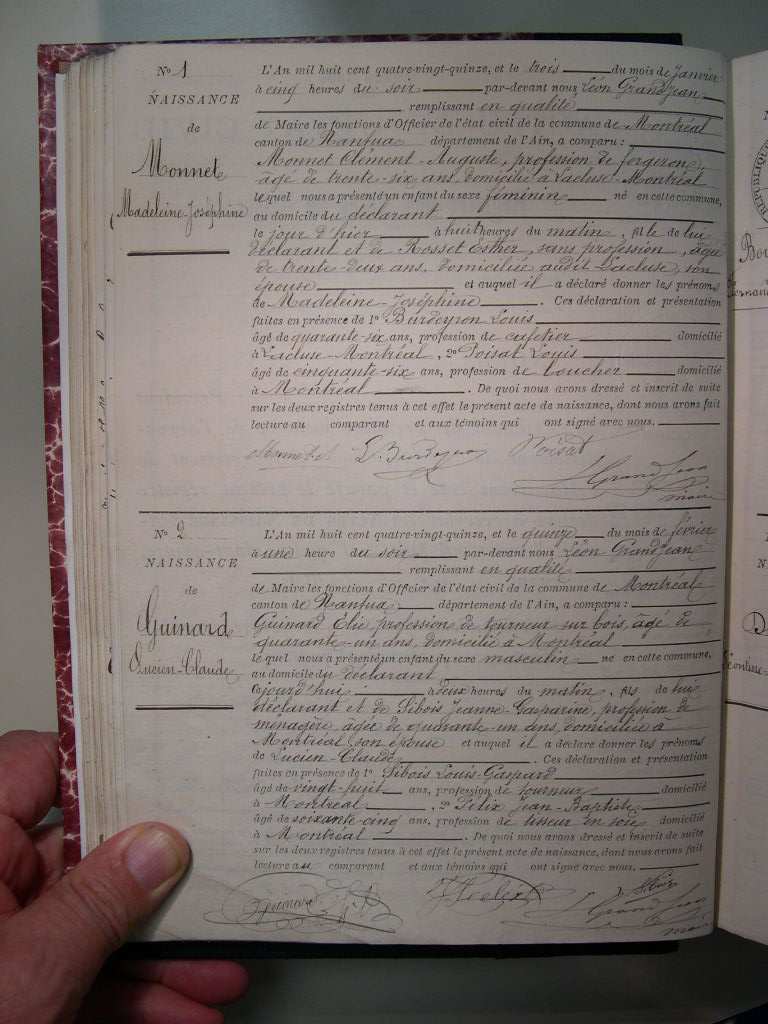 No 1
NAISSANCE
de
Monnet
Madeleine-Joséphine
L'An mil huit cent quatre-vingt-quinze, et le trois du mois de Janvier
à cinq heures du soir par-devant nous Léon Grandjean
remplissant en qualité
de Maire les fonctions d'Officier de l'état civil de la commune de Montréal
canton de Nantua département de l'Ain, a comparu :
Monnet Clément-Auguste, profession de forgeron,
âgé de trente-six ans, domicilié à Lacluse-Montréal
lequel nous a présenté un enfant du sexe féminin né en cette commune,
au domicile du déclarant
le jour d'hier à huit heures du matin, fille de lui
déclarant et de Rosset Esther, sans profession, âgée
de trente-deux ans, domiciliée audit Lacluse, son
épouse et auquel il a déclaré donner les prénoms
de Madeleine-Joséphine. Ces déclaration et présentation
faites en présence de 1o Burdeyron Louis
âgé de quarante-six ans, profession de cafetier domicilié
à Lacluse-Montréal, 2o Poisat Louis
âgé de cinquante-six ans, profession de boucher domicilié
à Montréal. De quoi nous avons dressé et inscrit de suite
sur les deux registres tenus à cet effet le présent acte de naissance, dont nous avons fait
lecture au comparant et aux témoins qui ont signé avec nous.
L. Burdeyron Poisat
L Grandjean
maire
No 2
NAISSANCE
de
Guinard
Lucien-Claude
L'An mil huit cent quatre-vingt-quinze, et le quinze du mois de février
à une heure du soir par-devant nous Léon Grandjean
remplissant en qualité
de Maire les fonctions d'Officier de l'état civil de la commune de Montréal
canton de Nantua département de l'Ain, a comparu :
Guinard Elie profession de tourneur sur bois, âgé de
quarante-un ans, domicilié à Montréal
lequel nous a présenté un enfant du sexe masculin né en cette commune,
au domicile du déclarant
Cejourd'hui à deux heures du matin, fils de lui
déclarant et de Sibois Jeanne-Gasparine, profession de
ménagère, âgée de quarante-un ans, domiciliée à
Montréal, son épouse et auquel il a déclaré donner les prénoms
de Lucien-Claude. Ces déclaration et présentation
faites en présence de 1o Sibois Louis-Gaspard
âgé de vingt-huit ans, profession de tourneur domicilié
à Montréal, 2o Félix Jean-Baptiste
âgé de soixante-cinq ans, profession de tisseur en soie domicilié
à Montréal. De quoi nous avons dressé et inscrit de suite
sur les deux registres tenus à cet effet le présent acte de naissance, dont nous avons fait
lecture au comparant et aux témoins qui ont signé avec nous.
Félix
L Grandjean
maire